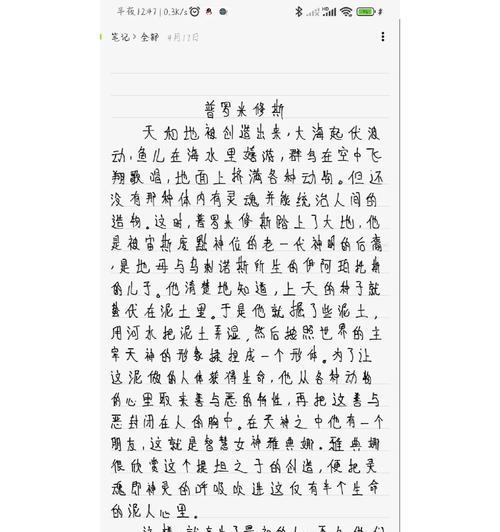 半夜12:47 | 0.3K/s
笔记 > 全部 4月12日
普罗米修斯
天和地被创造出来,大海起伏浪
动,鱼儿在海水里嬉游,群鸟在空中飞
翔歌唱,地面上挤满各种动物。但还
没有那种体内有灵魂并能统治人间的
造物。这时,普罗米修斯踏上了大地,他
是被宙斯废黜神位的老一代神明的后裔
,是地母与乌剌诺斯所生的伊阿珀托斯
的儿子。他清楚地知道,上天的种子就
蛰伏在泥土里。于是他就掘了些泥土,
用河水把泥土弄湿,然后按照世界的主
宰天神的形象揉捏成一个形体。为了让
这泥做的人体获得生命,他从各种动物
的心里取来善与恶的特性,再把这善与
恶封闭在人的胸中。在天神之中他有一个
朋友,这就是智慧女神雅典娜。雅典娜
很欣赏这个提坦之子的创造,便把灵
魂即神灵的呼吸吹进这仅有半个生命
的泥人心里。